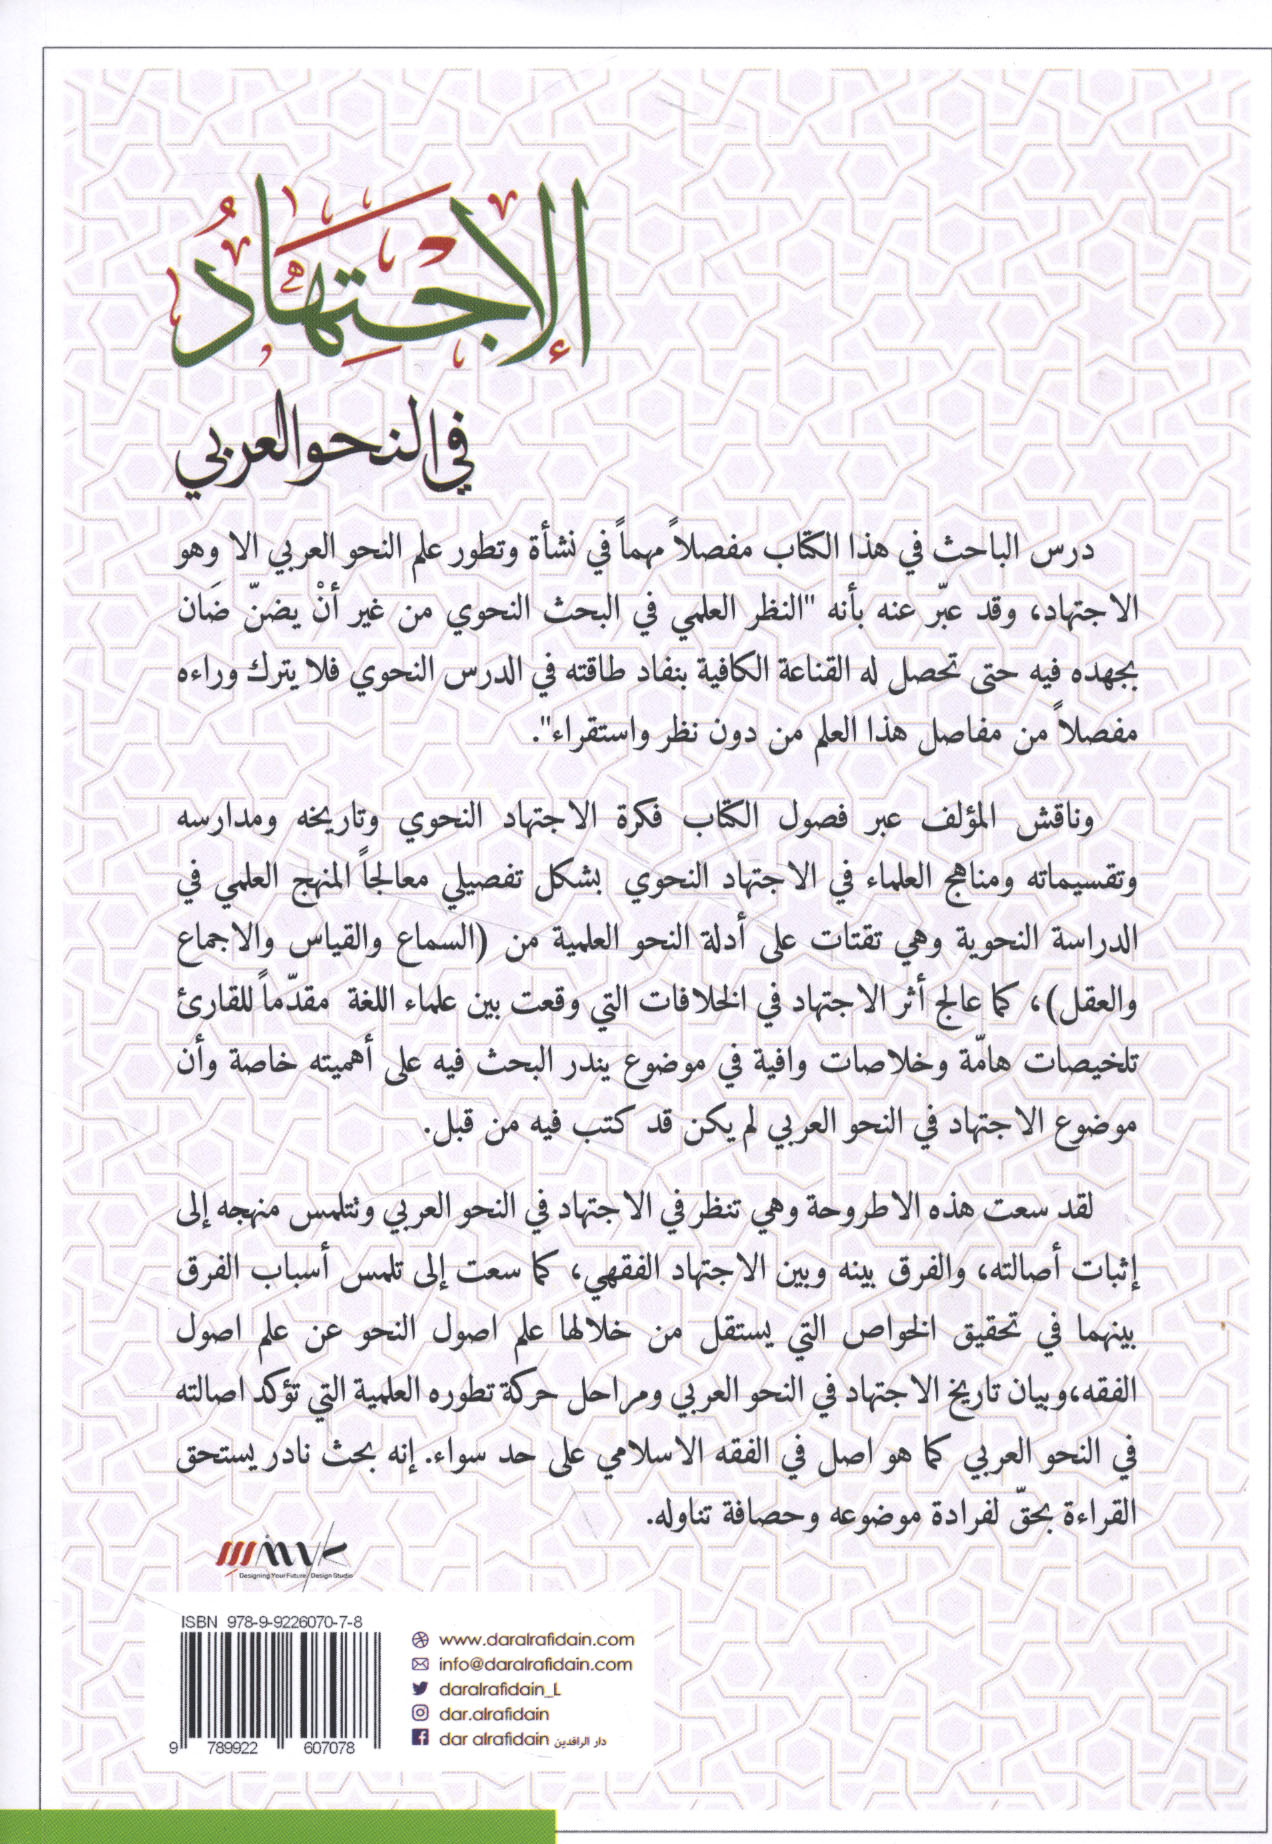 الاجْتِهَادُ
في النحو العربي
درس الباحث في هذا الكتاب مفصلاً مهماً في نشأة وتطور علم النحو العربي الا وهو
الاجتهاد، وقد عبّر عنه بأنه "النظر العلمي في البحث النحوي من غير أنْ يضنّ ضَان
بجهده فيه حتى تحصل له القناعة الكافية بنفاد طاقته في الدرس النحوي فلا يترك وراءه
مفصلاً من مفاصل هذا العلم من دون نظر واستقراء".
وناقش المؤلف عبر فصول الكتاب فكرة الاجتهاد النحوي وتاريخه ومدارسه
وتقسيماته ومناهج العلماء في الاجتهاد النحوي بشكل تفصيلي معالجاً المنهج العلمي في
الدراسة النحوية وهي تقتات على أدلة النحو العلمية من (السماع والقياس والاجماع
والعقل)، كما عالج أثر الاجتهاد في الخلافات التي وقعت بين علماء اللغة مقدّماً للقارئ
تلخيصات هامّة وخلاصات وافية في موضوع يندر البحث فيه على أهميته خاصة وأن
موضوع الاجتهاد في النحو العربي لم يكن قد كتب فيه من قبل.
لقد سعت هذه الاطروحة وهي تنظر في الاجتهاد في النحو العربي وتتلمس منهجه إلى
إثبات أصالته، والفرق بينه وبين الاجتهاد الفقهي، كما سعت إلى تلمس أسباب الفرق
بينهما في تحقيق الخواص التي يستقل من خلالها علم اصول النحو عن علم اصول
الفقه،وبيان تاريخ الاجتهاد في النحو العربي ومراحل حركة تطوره العلمية التي تؤكد اصالته
في النحو العربي كما هو اصل في الفقه الاسلامي على حد سواء. إنه بحث نادر يستحق
القراءة بحقّ لفرادة موضوعه وحصافة تناوله.
Designing Your Future / Design Studio
ISBN 978-9-9226070-7-8
9 789922 607078
www.daralrafidain.com
info@daralrafidain.com
daralrafidain_L
dar.alrafidain
dar alrafidain دار الرافدين